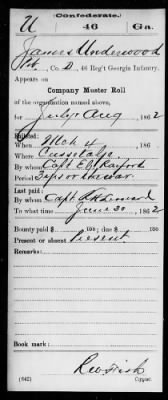 (Confederate.)
U 46 Ga.
James Underwood
Pvt, Co. D, 46 Reg't Georgia Infantry.
Appears on
Company Muster Roll
of the organization named above,
for July & Aug, 1862
Enlisted:
When Mch 4, 186
Where Cusseta Ga.
By whom Capt.
Period 3 yrs or the war
Last paid:
By whom Capt
To what time June 30, 1862
Bounty paid $ 100; due $ 100
Present or absent Present
Remarks:
Book mark:
(642)
Copyist.